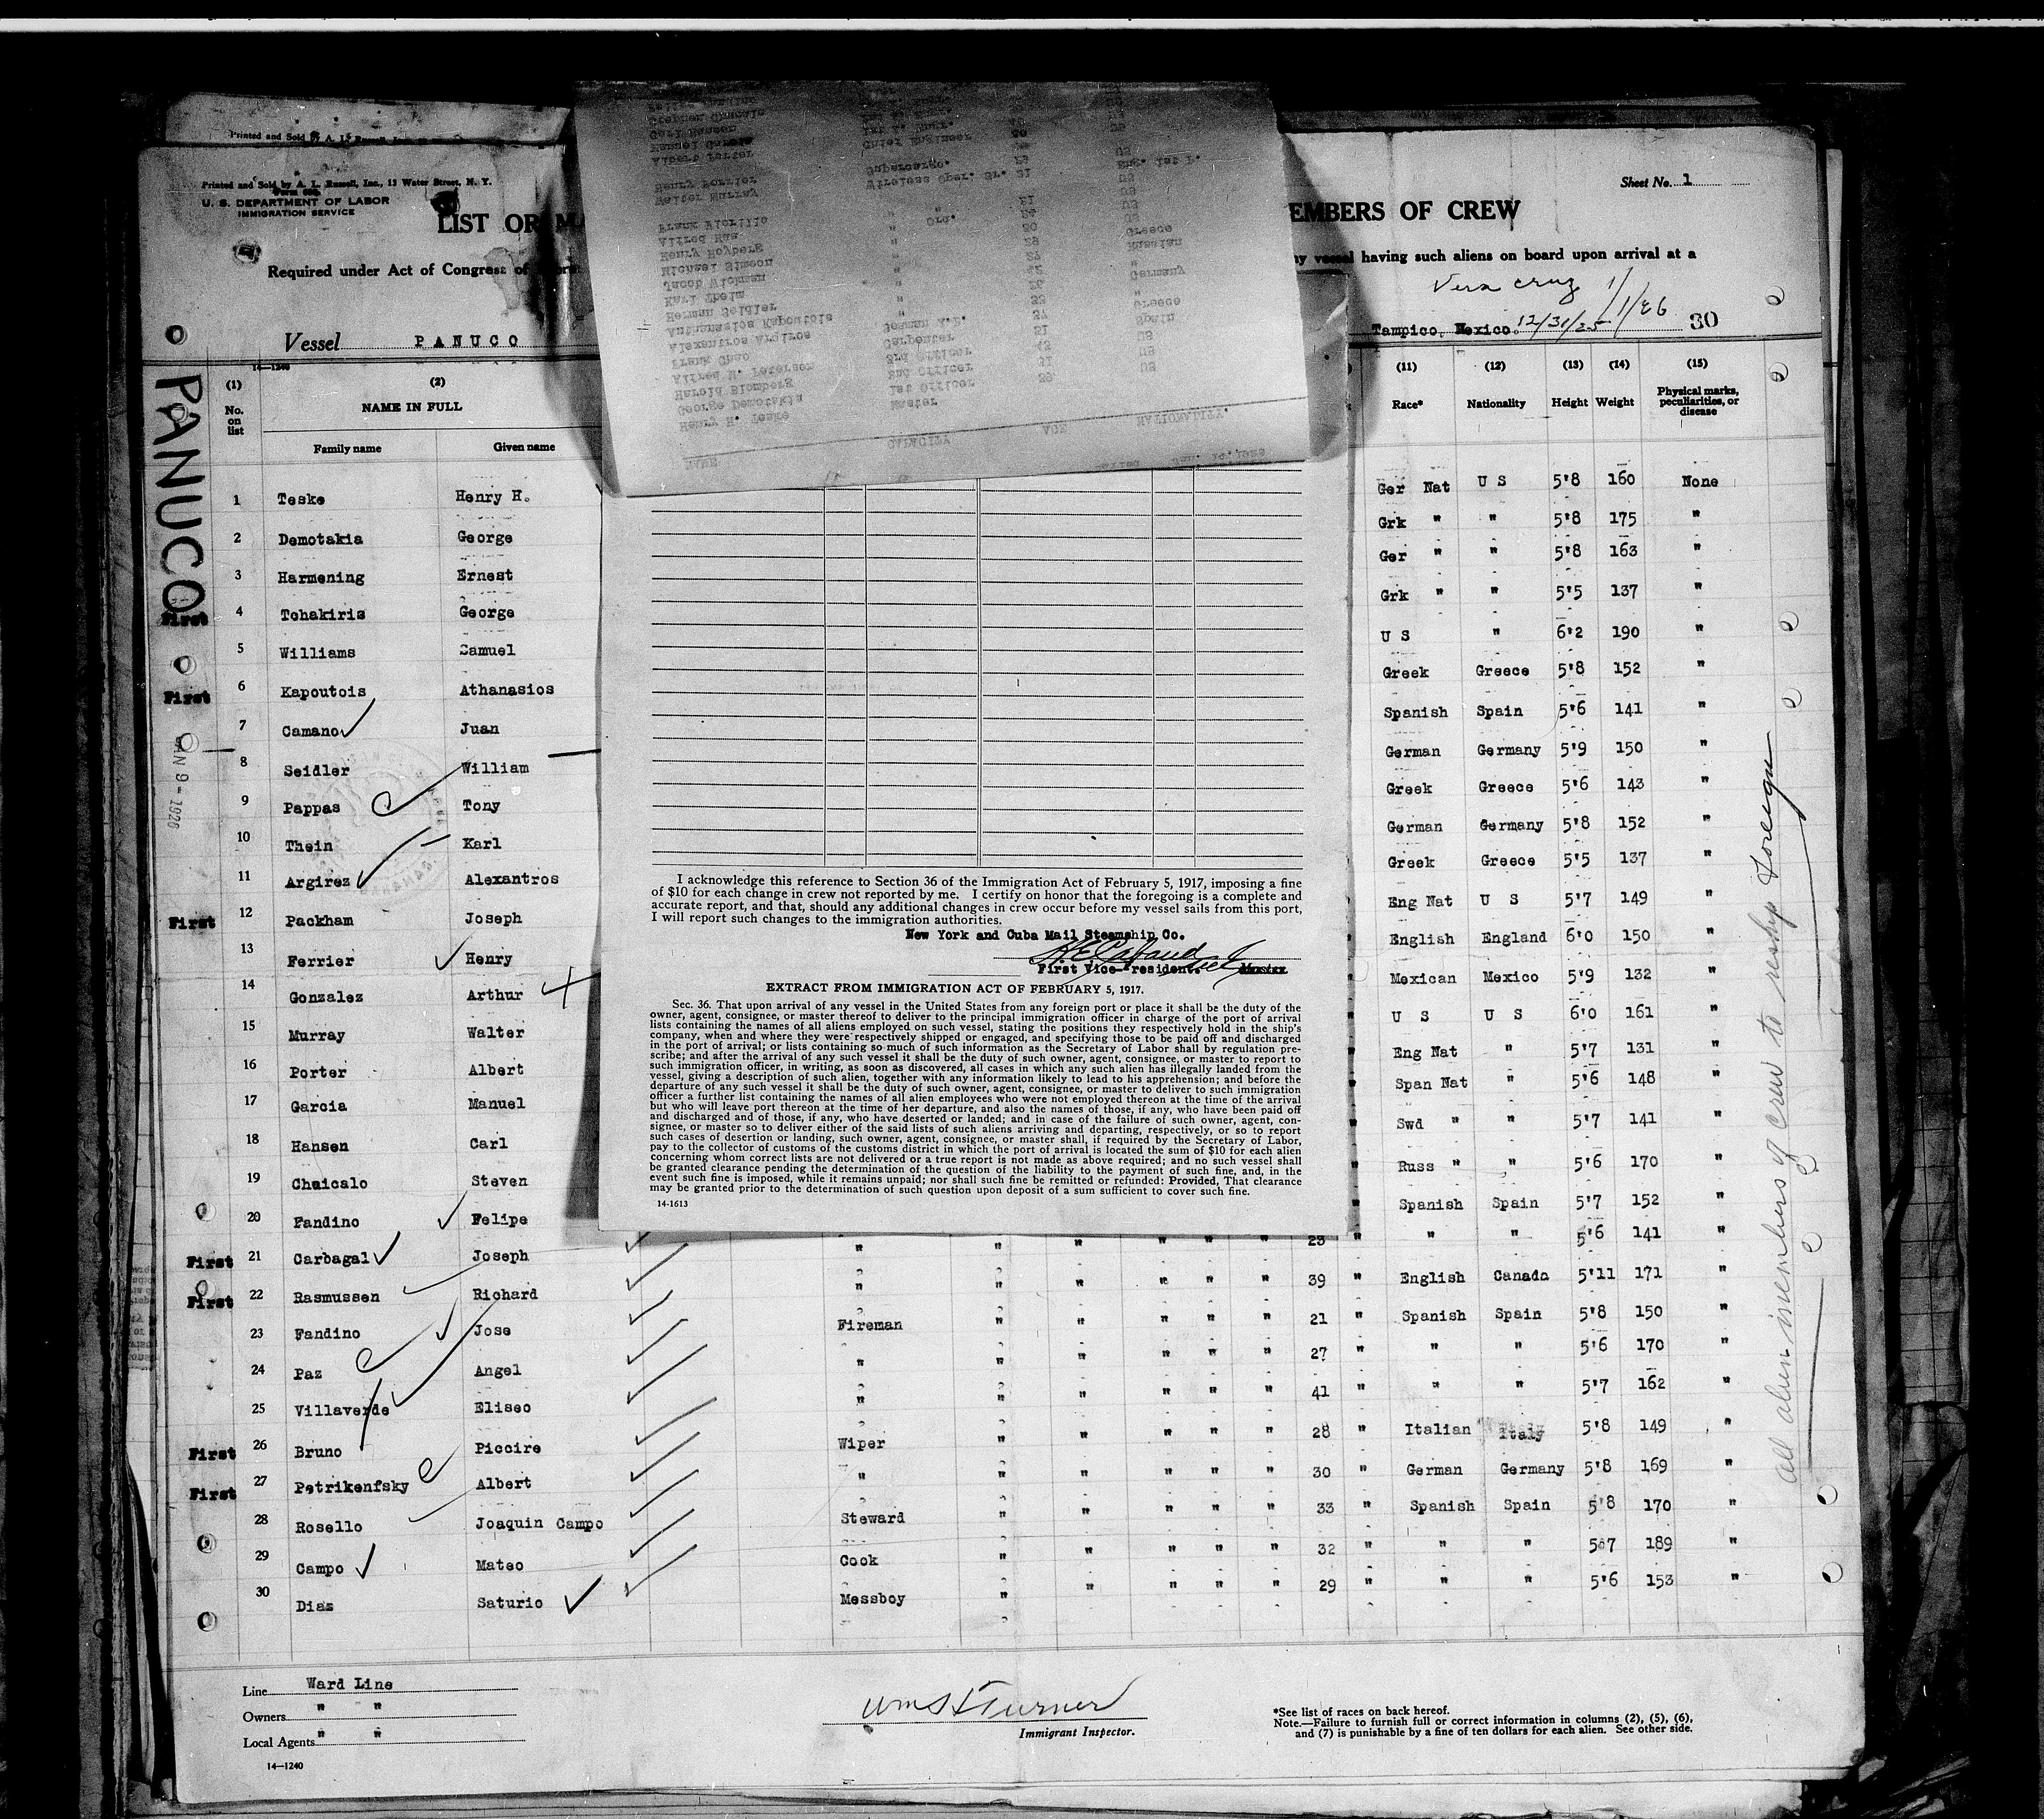 Printed and Sold by A. L. Russell, Inc.
Printed and Sold by A. L. Russell, Inc., 13 Water Street, N. Y.
U. S. DEPARTMENT OF LABOR
IMMIGRATION SERVICE
Sheet No. 1
LIST OR MA
EMBERS OF CREW
Required under Act of Congress of
ny vessel having such aliens on board upon arrival at a
Vera Cruz 1/1/26
Vessel PANUCO
Tampico, Mexico. 12/31/25
30
PANUCO
JAN 9 - 1926
14—1240
(1) (2) (11) (12) (13) (14) (15)
No. on list NAME IN FULL Race* Nationality Height Weight Physical marks, peculiarities, or disease
Family name Given name
NAME CAPACITY AGE NATIONALITY.
Henry H. Teske Master
George Demotakia 1st Officer 39 US
Harold Blomberg 2nd Officer
Alfred H. Peterson 3rd Officer
Frank Chao Carpenter
Alexantros Argiros
Anthanasios Kapoutois
Herman Seidler
Karl Theim
Jacob Wickman
Michael Simeon
Henry Hoyberg
Alfred Haa
Frank Fiorillo
Walter Murray
Henry Ferrier
Albert Porter
Manuel Garcia
Carl Hansen
1 Teske Henry H. Ger Nat U S 5'8 160 None
2 Demotakia George Grk " " 5'8 175 "
3 Harmening Ernest Ger " " 5'8 163 "
First 4 Tohakiris George Grk " " 5'5 137 "
5 Williams Samuel U S " 6'2 190 "
First 6 Kapoutois Athanasios Greek Greece 5'8 152 "
7 Camano Juan Spanish Spain 5'6 141 "
8 Seidler William German Germany 5'9 150 "
9 Pappas Tony Greek Greece 5'6 143 "
10 Thein Karl German Germany 5'8 152 "
11 Argirez Alexantros Greek Greece 5'5 137 "
First 12 Packham Joseph Eng Nat U S 5'7 149 "
13 Ferrier Henry English England 6'0 150 "
14 Gonzalez Arthur Mexican Mexico 5'9 132 "
15 Murray Walter U S U S 6'0 161 "
16 Porter Albert Eng Nat " 5'7 131 "
17 Garcia Manuel Span Nat " 5'6 148 "
18 Hansen Carl Swd " " 5'7 141 "
19 Chaicalo Steven Russ " " 5'6 170 "
20 Fandino Felipe Spanish Spain 5'7 152 "
First 21 Carbagal Joseph " " " " " " 23 " " " 5'6 141 "
First 22 Rasmussen Richard " " " " " " 39 " English Canada 5'11 171 "
23 Fandino Jose Fireman " " " " " 21 " Spanish Spain 5'8 150 "
24 Paz Angel " " " " " " 27 " " " 5'6 170 "
25 Villaverde Eliseo " " " " " " 41 " " " 5'7 162 "
First 26 Bruno Piccire Wiper " " " " " 28 " Italian Italy 5'8 149 "
First 27 Petrikenfsky Albert " " " " " " 30 " German Germany 5'8 169 "
28 Rosello Joaquin Campo Steward " " " " " 33 " Spanish Spain 5'8 170 "
29 Campo Mateo Cook " " " " " 32 " " " 5'7 189 "
30 Diaz Saturio Messboy " " " " " 29 " " " 5'6 153 "
I acknowledge this reference to Section 36 of the Immigration Act of February 5, 1917, imposing a fine
of $10 for each change in crew not reported by me. I certify on honor that the foregoing is a complete and
accurate report, and that, should any additional changes in crew occur before my vessel sails from this port,
I will report such changes to the immigration authorities.
New York and Cuba Mail Steamship Co.
First Vice-President.
EXTRACT FROM IMMIGRATION ACT OF FEBRUARY 5, 1917.
Sec. 36. That upon arrival of any vessel in the United States from any foreign port or place it shall be the duty of the
owner, agent, consignee, or master thereof to deliver to the principal immigration officer in charge of the port of arrival
lists containing the names of all aliens employed on such vessel, stating the positions they respectively hold in the ship's
company, when and where they were respectively shipped or engaged, and specifying those to be paid off and discharged
in the port of arrival; or lists containing so much of such information as the Secretary of Labor shall by regulation pre-
scribe; and after the arrival of any such vessel it shall be the duty of such owner, agent, consignee, or master to report to
such immigration officer, in writing, as soon as discovered, all cases in which any such alien has illegally landed from the
vessel, giving a description of such alien, together with any information likely to lead to his apprehension; and before the
departure of any such vessel it shall be the duty of such owner, agent, consignee, or master to deliver to such immigration
officer a further list containing the names of all alien employees who were not employed thereon at the time of the arrival
but who will leave port thereon at the time of her departure, and also the names of those, if any, who have been paid off
and discharged and of those, if any, who have deserted or landed; and in case of the failure of such owner, agent, con-
signee, or master so to deliver either of the said lists of such aliens arriving and departing, respectively, or so to report
such cases of desertion or landing, such owner, agent, consignee, or master shall, if required by the Secretary of Labor,
pay to the collector of customs of the customs district in which the port of arrival is located the sum of $10 for each alien
concerning whom correct lists are not delivered or a true report is not made as above required; and no such vessel shall
be granted clearance pending the determination of the question of the liability to the payment of such fine, and, in the
event such fine is imposed, while it remains unpaid; nor shall such fine be remitted or refunded: Provided, That clearance
may be granted prior to the determination of such question upon deposit of a sum sufficient to cover such fine.
14-1613
All alien members of crew to reship Foreign
Line Ward Line
Owners " "
Local Agents " "
14—1240
Wm S Turner
Immigrant Inspector.
*See list of races on back hereof.
Note.—Failure to furnish full or correct information in columns (2), (5), (6),
and (7) is punishable by a fine of ten dollars for each alien. See other side.